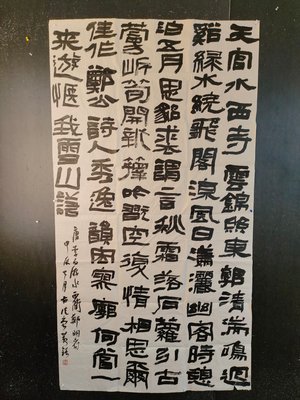 天宮水西寺雲錦照東郭清湍鳴迴
谿綠水繞飛閣涼風日瀟灑幽客時憩
泊五月思貂裘謂言秋霜落石蘿引古
蔓岸筍開新籜吟翫空復情相思爾
佳作鄭公詩人秀逸韻宏寥廓何當一
來遊愜我雪山諾
唐李白游水西簡鄭明府
甲辰